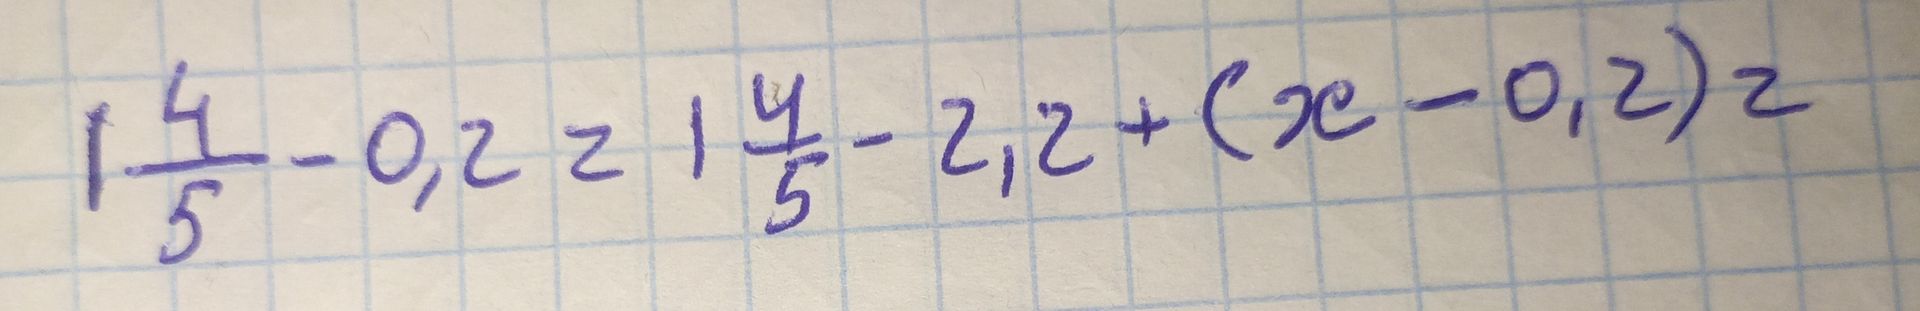 1 4/5 - 0,2 = 1 4/5 - 2,2 + (x - 0,2) =